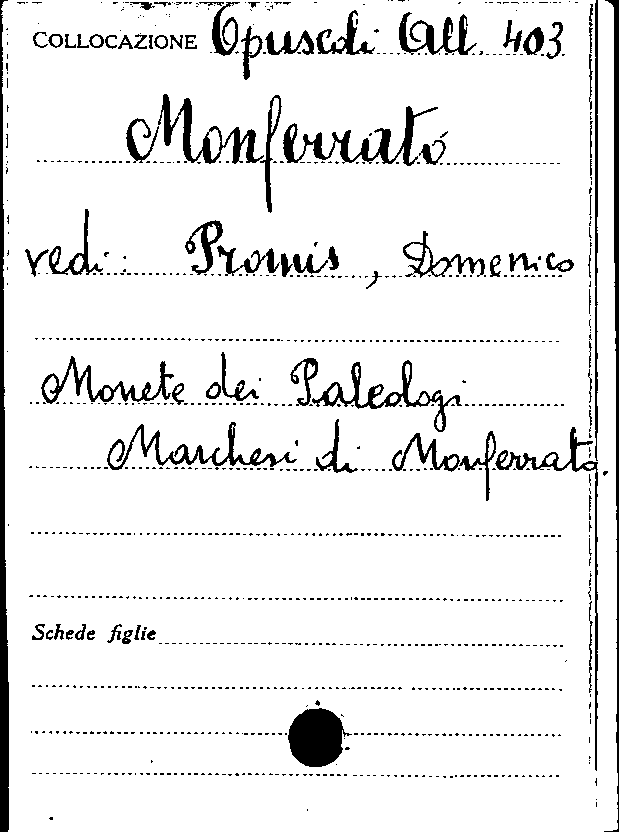 COLLOCAZIONE Opuscoli All. 403
Monferrato
vedi: Promis, Domenico
Monete dei Paleologi
Marchesi di Monferrato.
Schede figlie